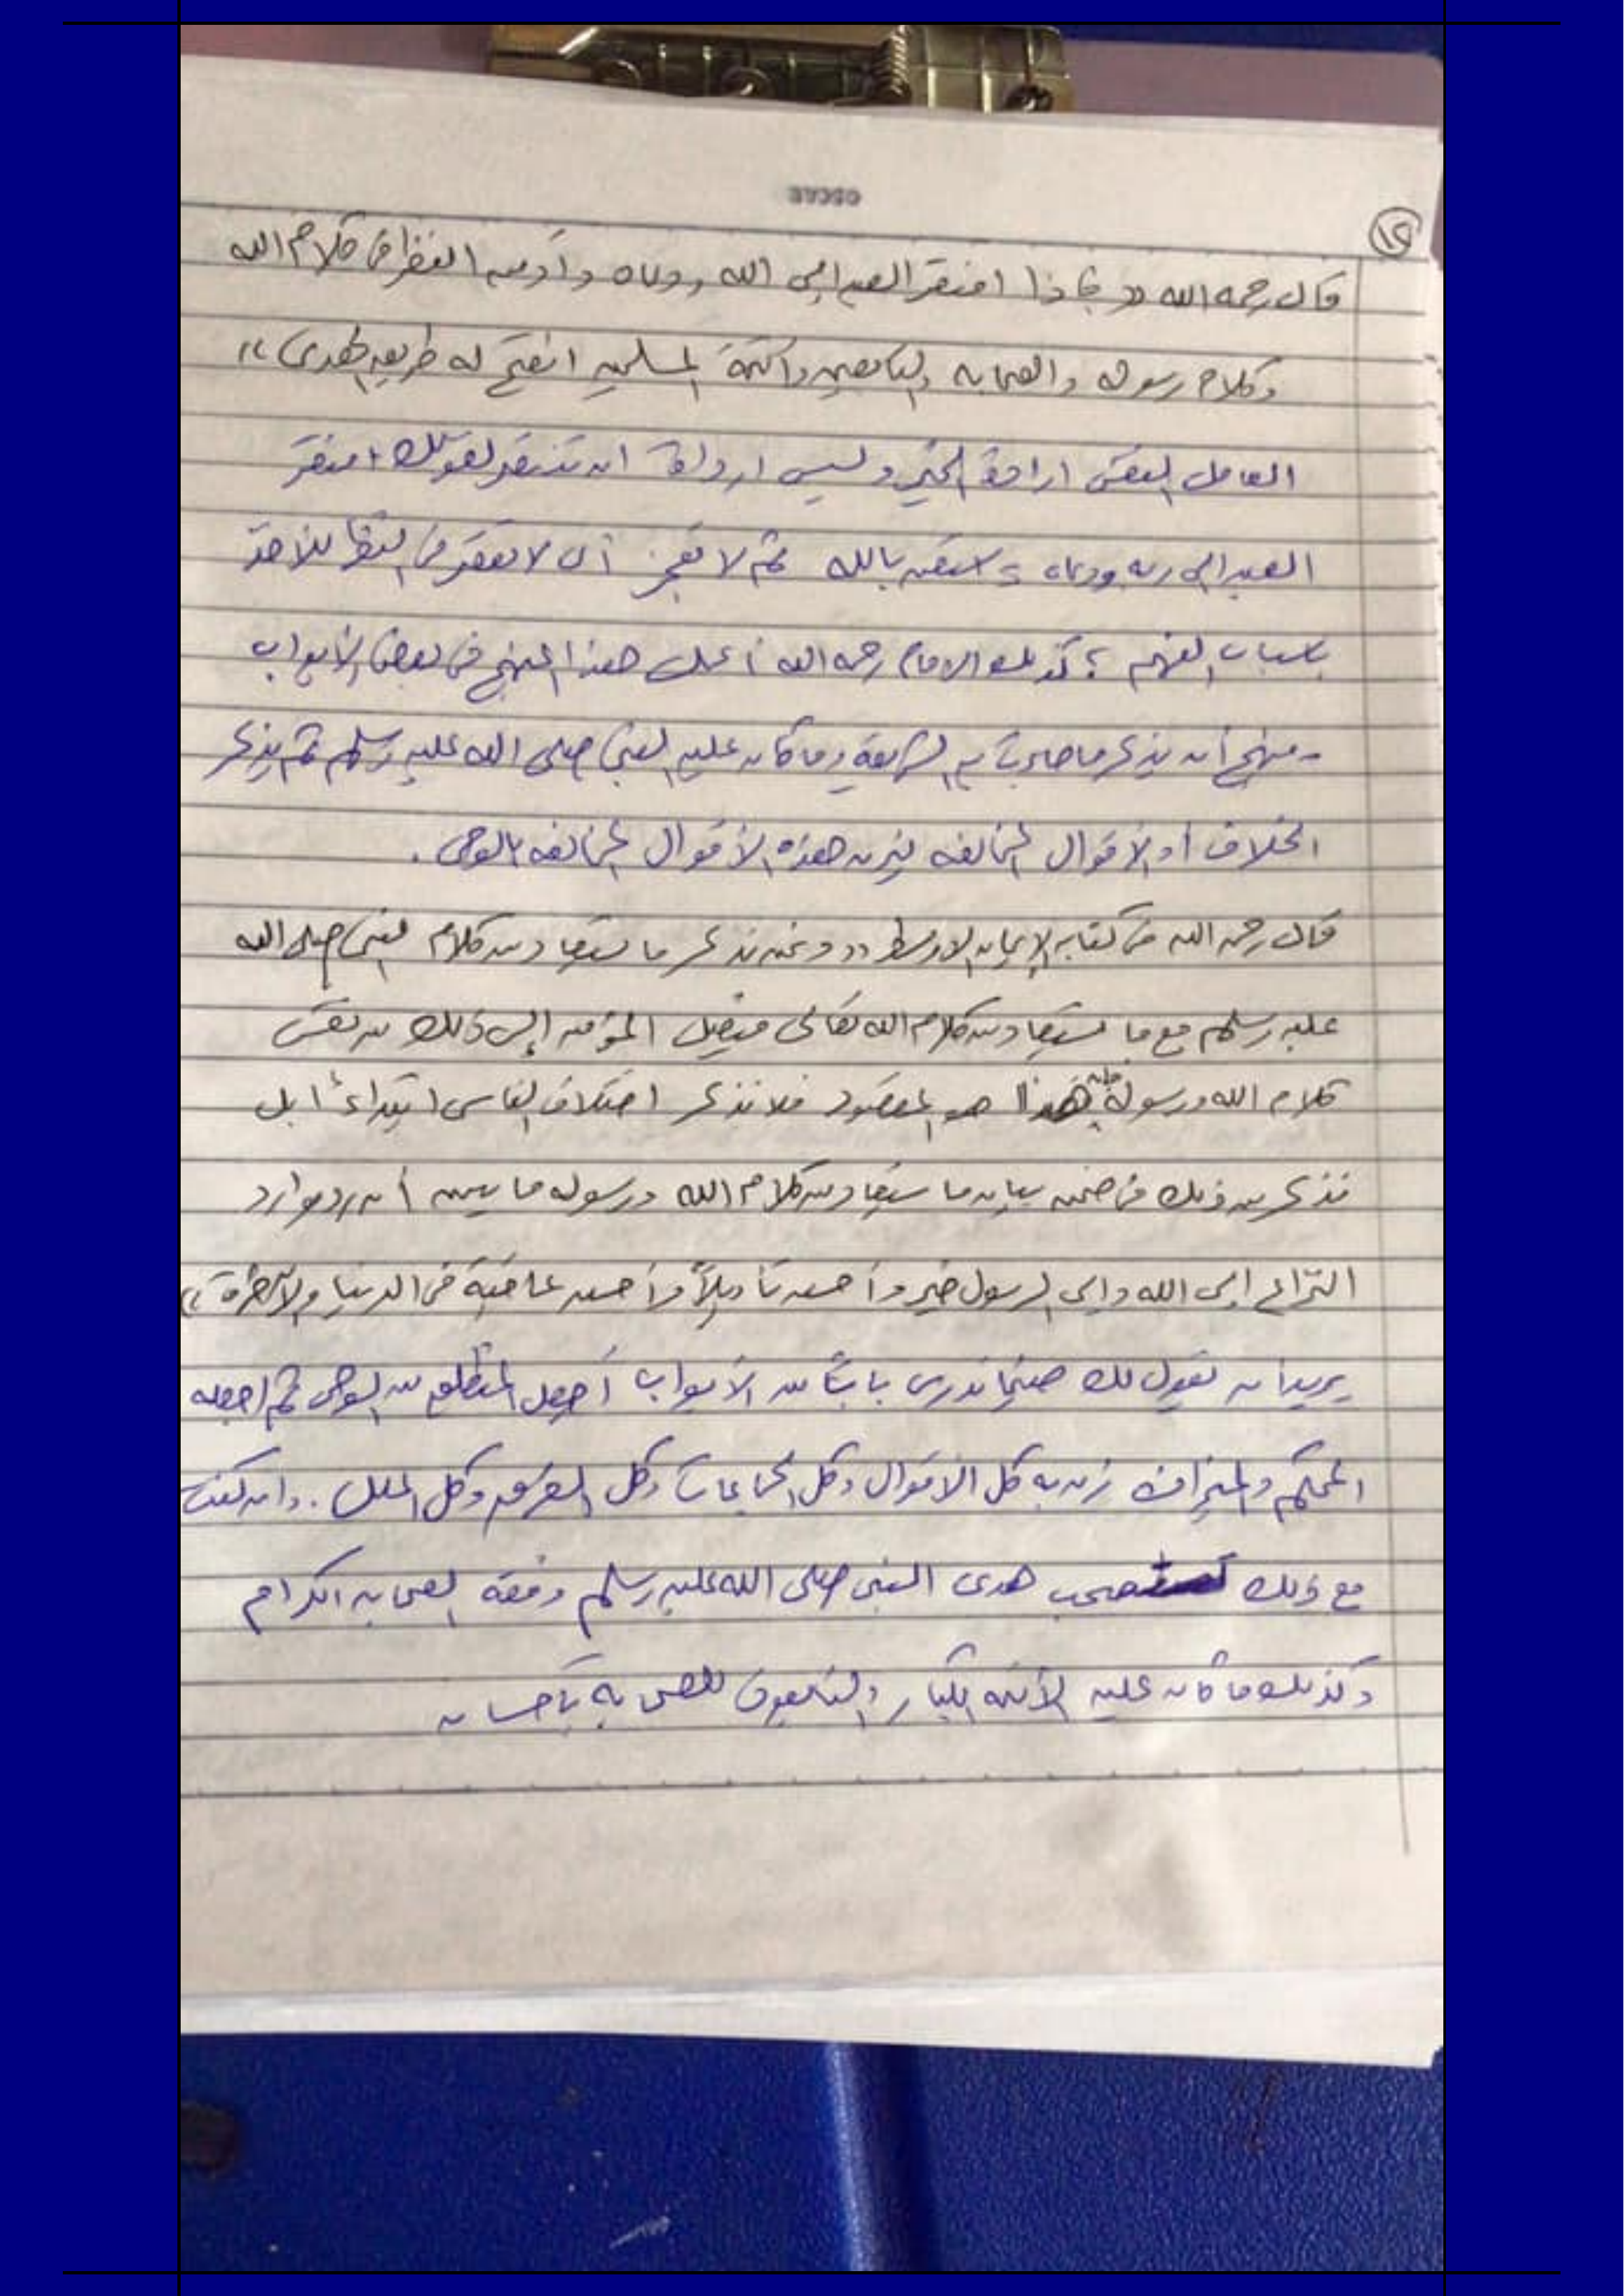 ١٢
قال رحمه الله « فإذا افتقر العبد إلى الله ودعاه وأدمن النظر في كلام الله
وكلام رسوله والصحابه والتابعين وائمة المسلمين انفتح له طريق الهدى »
العامل النفسي ارادة الخير وليس ارادة ان تنتصر لقولك افتقر
العبد إلى ربه ودعاه استعن بالله ثم لا تعجز أي لا تقصر في للأخذ
باسباب الفهم ؛ كذلك الامام رحمه الله أعمل هذا المنهج في بعض الأبواب
- منهج أن يذكر ما جاءت به الشريعة وما كان عليه النبي صلى الله عليه وسلم ثم يذكر
الخلاف أو الأقوال المخالفه ليزن هذه الأقوال المخالفه بالوحي .
قال رحمه الله في كتابه الإيمان الاوسط «ونحن نذكر ما يستفاد من كلام النبي صلى الله
عليه وسلم مع ما يستفاد من كلام الله تعالى فيصل المؤمن إلى ذلك من نفس
كلام الله ورسوله فإن هذا هو المقصود فلا نذكر اختلاف الناس ابتداءً ابل
نذكر من ذلك في ضمن بيان ما يستفاد من كلام الله ورسوله ما يبين أن رد موارد
النزاع إلى الله وإلى الرسول خير وأحسن تأويلاً وأحسن عاقبة في الدنيا والآخرة »
يريد ان يقول لك حينما تدرس باباً من الأبواب أجعل المنطلق من الوحي ثم اجعله
المحكم والميزان زن به كل الاقوال وكل الجماعات وكل الفرق وكل الملل . وان كنت
مع ذلك تستصحب هدى النبي صلى الله عليه وسلم وفقه الصحابه الكرام
وكذلك ما كان عليه الأئمه الكبار والتابعون للصحابه بإحسان